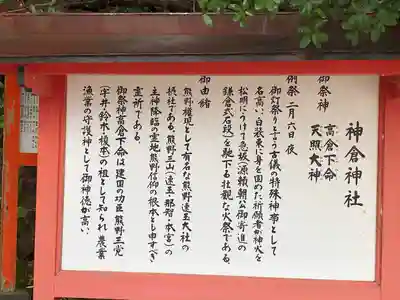 神倉神社
御祭神 高倉下命
天照大神
例祭 二月六日夜
御灯祭りと言う古儀の特殊神事として
名高い。白装束に身を固めた祈願者が神火を
松明にうけて急坂(源頼朝公御寄進の
鎌倉式石段)を馳下る壮観な火祭である。
御由緒
熊野権現として有名な熊野速玉大社の
摂社である。熊野三山(速玉・那智・本宮)の
主神降臨の霊地熊野信仰の根本とも申すべき
霊所である。
御祭神高倉下命は建国の功臣熊野三党
(宇井・鈴木・榎本)の祖として知られ農業
漁業の守護神として御神徳が高い。